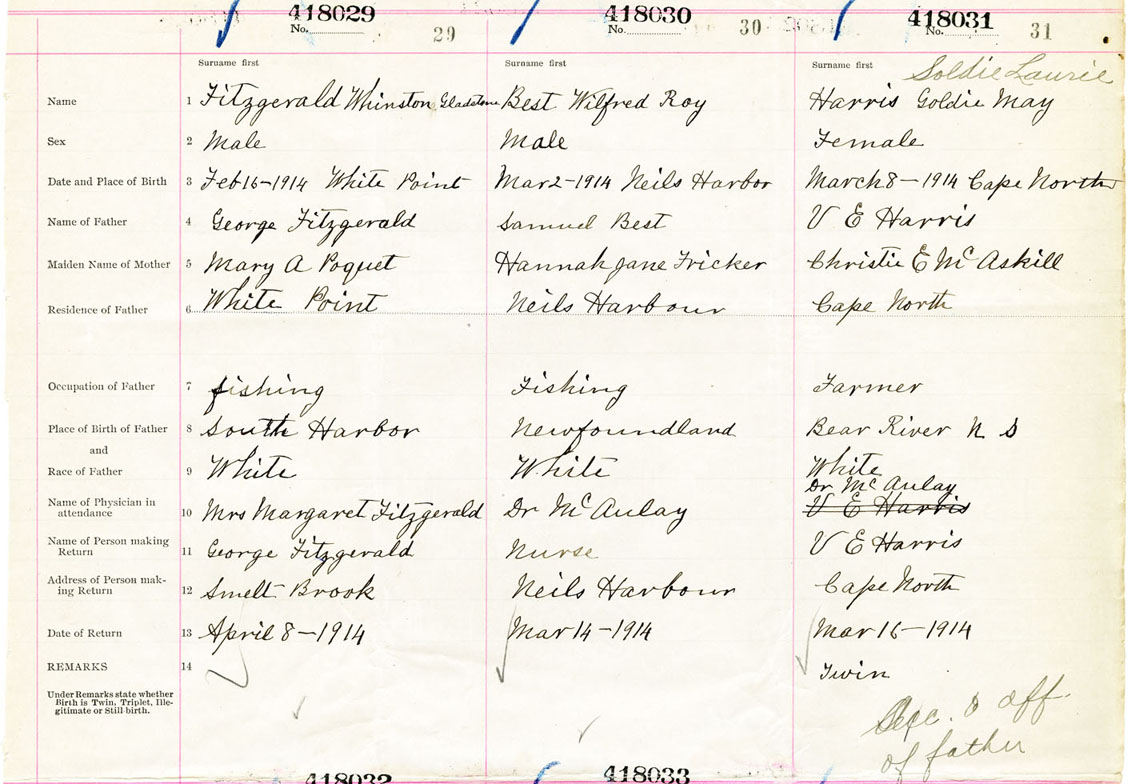 418029 418030 418031
No. 29 No. 30 No. 31
Surname first Surname first Surname first Goldie Laurie
Name 1 Fitzgerald Whinston Gladstone Best Wilfred Roy Harris Goldie May
Sex 2 Male Male Female
Date and Place of Birth 3 Feb 16-1914 White Point Mar 2-1914 Neils Harbor March 8-1914 Cape North
Name of Father 4 George Fitzgerald Samuel Best V E Harris
Maiden Name of Mother 5 Mary A Poquet Hannah Jane Fricker Christie E McAskill
Residence of Father 6 White Point Neils Harbour Cape North
Occupation of Father 7 fishing Fishing Farmer
Place of Birth of Father 8 South Harbor Newfoundland Bear River N S
and
Race of Father 9 White White White
Dr McAulay
Name of Physician in attendance 10 Mrs Margaret Fitzgerald Dr McAulay V E Harris
Name of Person making Return 11 George Fitzgerald Nurse V E Harris
Address of Person mak-ing Return 12 Smelt Brook Neils Harbour Cape North
Date of Return 13 April 8-1914 Mar 14-1914 Mar 16-1914
REMARKS 14 Twin
Under Remarks state whether
Birth is Twin, Triplet, Ille-
gitimate or Still-birth.
aff.
of father
418032 418033